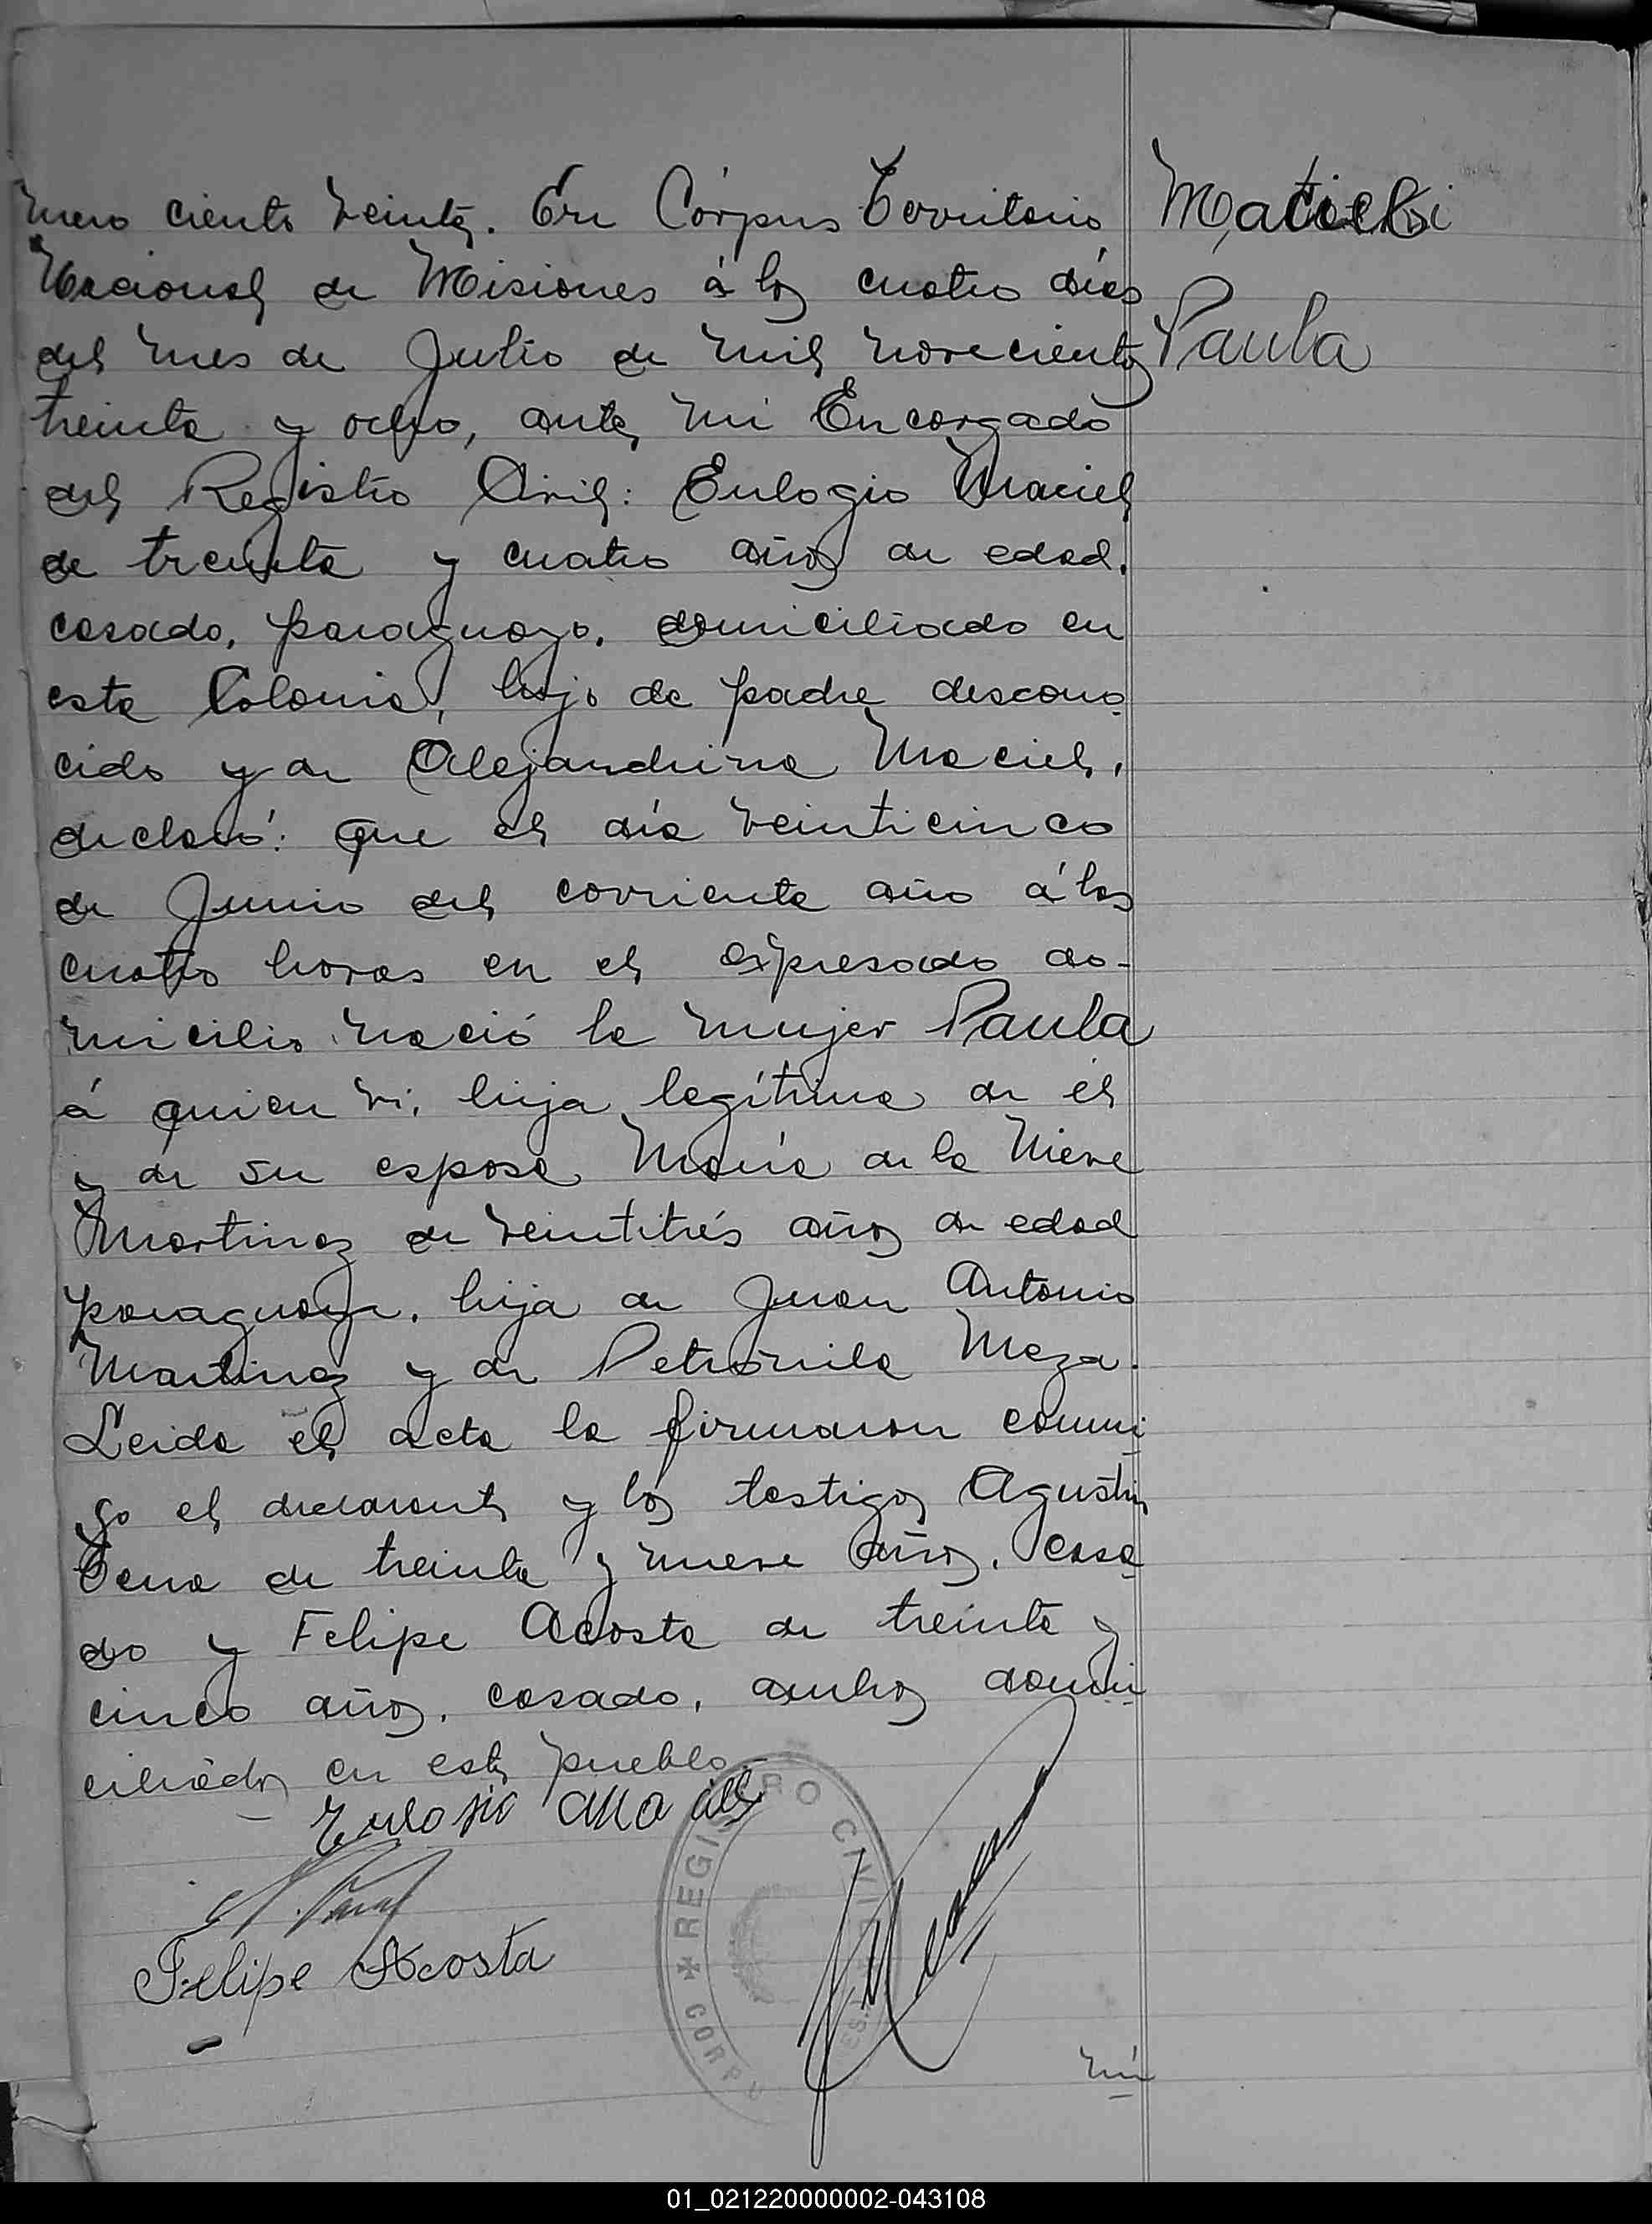 mero ciento veinte. En Córpus Territorio
Nacional de Misiones á los cuatro días
del mes de Julio de mil novecientos
treinta y ocho, ante mi Encargado
del Registro Civil: Eulogio Maciel
de treinta y cuatro años de edad.
casado, paraguayo, domiciliado en
esta Colonia, hijo de padre descono
cido y de Alejandrina Maciel,
declaró: que el día veinticinco
de Junio del corriente año á las
cuatro horas en el expresado do-
micilio nació la mujer Paula
á quien vi, hija legítima de él
y de su esposa María de la Nieve
Martinez de veintitrés años de edad
paraguaya, hija de Juan Antonio
Martinez y de Petronila Meza.
Leida el acta la firmaron conmi
go el declarante y los testigos Agustín
de treinta y nueve años, casa
do y Felipe Acosta de treinta y
cinco años, casado, ambos domi
ciliados en este pueblo
Eulogio Maciel
Felipe Acosta
REGISTRO CIVIL
CORPU
nú
Paula
01_021220000002-043108